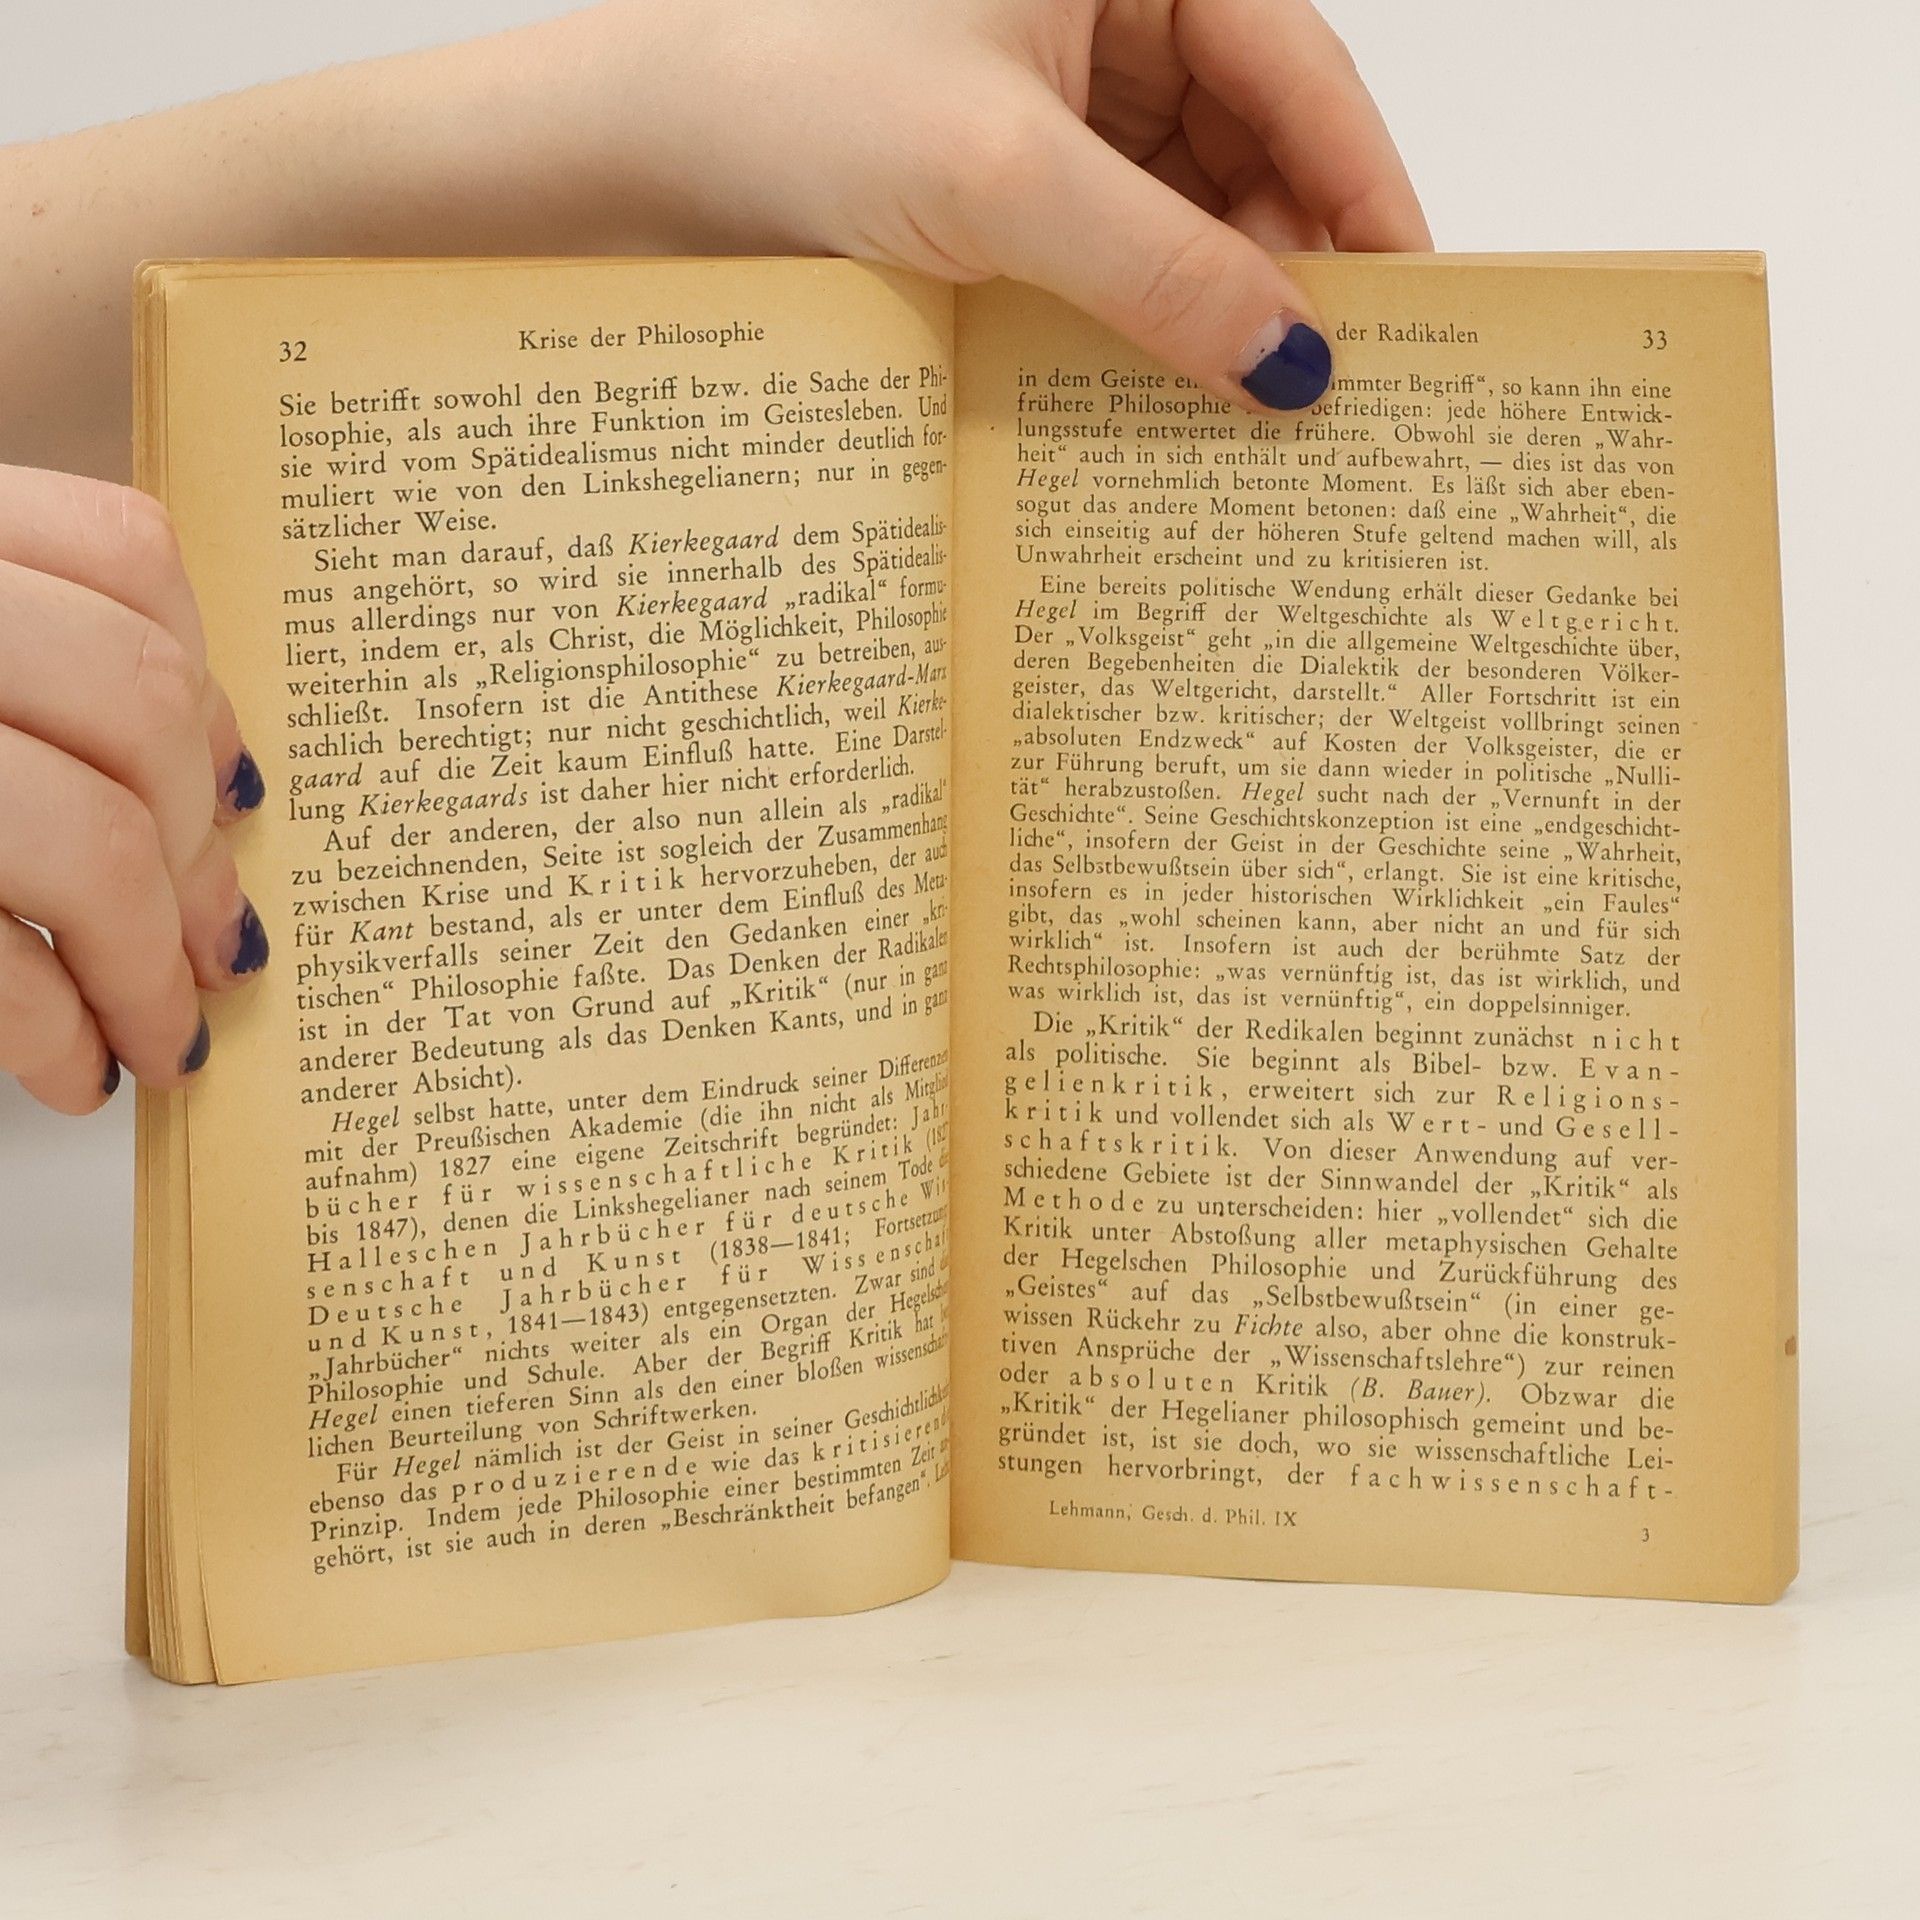 32 Krise der Philosophie
Sie betrifft sowohl den Begriff bzw. die Sache der Phi-
losophie, als auch ihre Funktion im Geistesleben. Und
sie wird vom Spätidealismus nicht minder deutlich for-
muliert wie von den Linkshegelianern; nur in gegen-
sätzlicher Weise.
Sieht man darauf, daß Kierkegaard dem Spätidealis-
mus angehört, so wird sie innerhalb des Spätidealis-
mus allerdings nur von Kierkegaard „radikal“ formu-
liert, indem er, als Christ, die Möglichkeit, Philosophie
weiterhin als „Religionsphilosophie“ zu betreiben, aus-
schließt. Insofern ist die Antithese Kierkegaard-Marx
sachlich berechtigt; nur nicht geschichtlich, weil Kierke-
gaard auf die Zeit kaum Einfluß hatte. Eine Darstel-
lung Kierkegaards ist daher hier nicht erforderlich.
Auf der anderen, der also nun allein als „radikal“
zu bezeichnenden, Seite ist sogleich der Zusammenhang
zwischen Krise und Kritik hervorzuheben, der auch
für Kant bestand, als er unter dem Einfluß des Meta-
physikverfalls seiner Zeit den Gedanken einer „kri-
tischen“ Philosophie faßte. Das Denken der Radikalen
ist in der Tat von Grund auf „Kritik“ (nur in ganz
anderer Bedeutung als das Denken Kants, und in ganz
anderer Absicht).
Hegel selbst hatte, unter dem Eindruck seiner Differenzen
mit der Preußischen Akademie (die ihn nicht als Mitglied
aufnahm) 1827 eine eigene Zeitschrift begründet: Jahr-
bücher für wissenschaftliche Kritik (1827
bis 1847), denen die Linkshegelianer nach seinem Tode die
Halleschen Jahrbücher für deutsche Wis-
senschaft und Kunst (1838—1841; Fortsetzung
Deutsche Jahrbücher für Wissenschaft
und Kunst, 1841—1843) entgegensetzten. Zwar sind die
„Jahrbücher“ nichts weiter als ein Organ der Hegelschen
Philosophie und Schule. Aber der Begriff Kritik hat bei
Hegel einen tieferen Sinn als den einer bloßen wissenschaft-
lichen Beurteilung von Schriftwerken.
Für Hegel nämlich ist der Geist in seiner Geschichtlichkeit
ebenso das produzierende wie das kritisierende
Prinzip. Indem jede Philosophie einer bestimmten Zeit an-
gehört, ist sie auch in deren „Beschränktheit befangen“. Lebt
der Radikalen 33
in dem Geiste immter Begriff“, so kann ihn eine
frühere Philosophie befriedigen: jede höhere Entwick-
lungsstufe entwertet die frühere. Obwohl sie deren „Wahr-
heit“ auch in sich enthält und aufbewahrt, — dies ist das von
Hegel vornehmlich betonte Moment. Es läßt sich aber eben-
sogut das andere Moment betonen: daß eine „Wahrheit“, die
sich einseitig auf der höheren Stufe geltend machen will, als
Unwahrheit erscheint und zu kritisieren ist.
Eine bereits politische Wendung erhält dieser Gedanke bei
Hegel im Begriff der Weltgeschichte als Weltgericht.
Der „Volksgeist“ geht „in die allgemeine Weltgeschichte über,
deren Begebenheiten die Dialektik der besonderen Völker-
geister, das Weltgericht, darstellt.“ Aller Fortschritt ist ein
dialektischer bzw. kritischer; der Weltgeist vollbringt seinen
„absoluten Endzweck“ auf Kosten der Volksgeister, die er
zur Führung beruft, um sie dann wieder in politische „Nulli-
tät“ herabzustoßen. Hegel sucht nach der „Vernunft in der
Geschichte“. Seine Geschichtskonzeption ist eine „endgeschicht-
liche“, insofern der Geist in der Geschichte seine „Wahrheit,
das Selbstbewußtsein über sich“, erlangt. Sie ist eine kritische,
insofern es in jeder historischen Wirklichkeit „ein Faules“
gibt, das „wohl scheinen kann, aber nicht an und für sich
wirklich“ ist. Insofern ist auch der berühmte Satz der
Rechtsphilosophie: „was vernünftig ist, das ist wirklich, und
was wirklich ist, das ist vernünftig“, ein doppelsinniger.
Die „Kritik“ der Redikalen beginnt zunächst nicht
als politische. Sie beginnt als Bibel- bzw. Evan-
gelienkritik, erweitert sich zur Religions-
kritik und vollendet sich als Wert- und Gesell-
schaftskritik. Von dieser Anwendung auf ver-
schiedene Gebiete ist der Sinnwandel der „Kritik“ als
Methode zu unterscheiden: hier „vollendet“ sich die
Kritik unter Abstoßung aller metaphysischen Gehalte
der Hegelschen Philosophie und Zurückführung des
„Geistes“ auf das „Selbstbewußtsein“ (in einer ge-
wissen Rückehr zu Fichte also, aber ohne die konstruk-
tiven Ansprüche der „Wissenschaftslehre“) zur reinen
oder absoluten Kritik (B. Bauer). Obzwar die
„Kritik“ der Hegelianer philosophisch gemeint und be-
gründet ist, ist sie doch, wo sie wissenschaftliche Lei-
stungen hervorbringt, der fachwissenschaft-
Lehmann, Gesch. d. Phil. IX 3